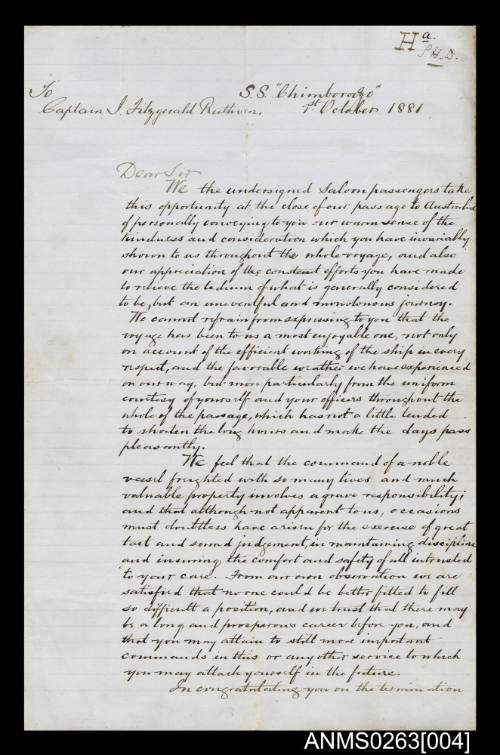 Ha.
P.H.D.
To S.S. "Chimborazo"
Captain J. Fitzgerald Ruthven. 1st October 1881
Dear Sir
We the undersigned Saloon passengers take
this opportunity at the close of our passage to Australia
of personally conveying to you our warm sense of the
kindness and consideration which you have invariably
shown to us throughout the whole voyage, and also
our appreciation of the constant efforts you have made
to relieve the tedium of what is generally considered
to be, but an uneventful and monotonous journey.
We cannot refrain from expressing to you that the
voyage has been to us a most enjoyable one, not only
on account of the efficient working of the ship in every
respect, and the favorable weather we have experienced
on our way, but more particularly from the uniform
courtesy of yourself and your officers throughout the
whole of the passage, which has not a little tended
to shorten the long hours and make the days pass
pleasantly.
We feel that the command of a noble
vessel freighted with so many lives and much
valuable property involves a grave responsibility;
and that although not apparent to us, occasions
must doubtless have arisen for the exercise of great
tact and sound judgement, in maintaining discipline
and insuring the comfort and safety of all intrusted
to your care. From our own observation we are
satisfied that no one could be better fitted to fill
so difficult a position, and we trust that there may
be a long and prosperous career before you, and
that you may attain to still more important
commands in this or any other service to which
you may attach yourself in the future.
In congratulating you on the termination
ANMS0263[004]